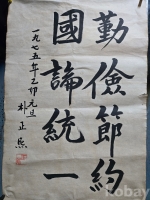 勤儉節約
國論統一
一九七五年乙卯元旦
朴正熙
Kobay